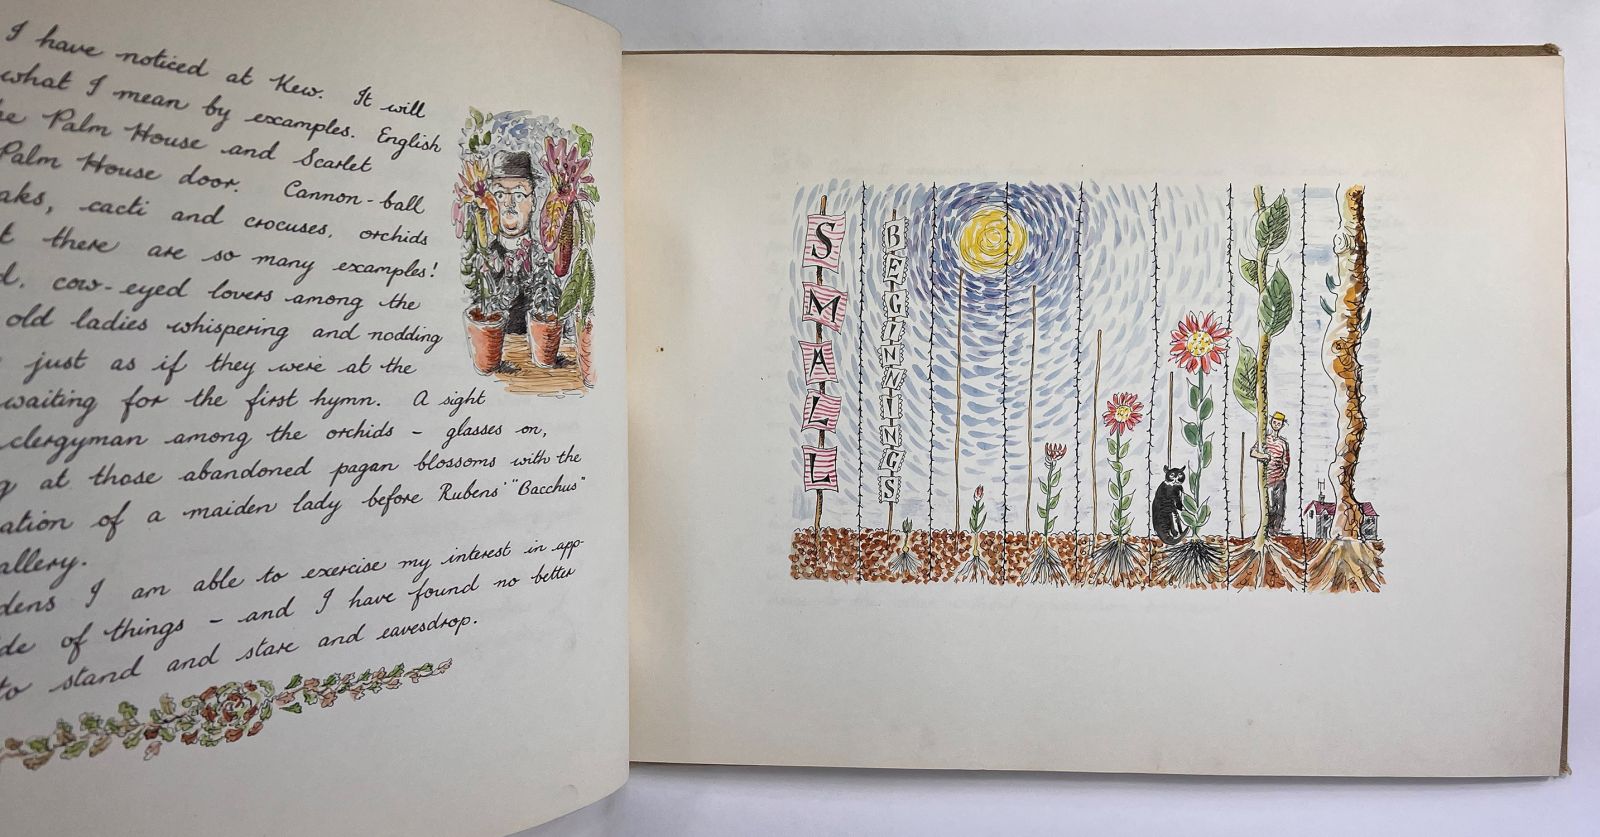 I have noticed at Kew. It will
what I mean by examples. English
Palm House and Scarlet
Palm House door. Cannon-ball
cacti and crocuses, orchids
there are so many examples!
cow-eyed lovers among the
old ladies whispering and nodding
just as if they were at the
waiting for the first hymn. A sight
clergyman among the orchids - glasses on,
at those abandoned pagan blossoms with the
of a maiden lady before Rubens' "Bacchus"
I am able to exercise my interest in app-
of things - and I have found no better
to stand and stare and eavesdrop.
SMALL
BEGINNINGS